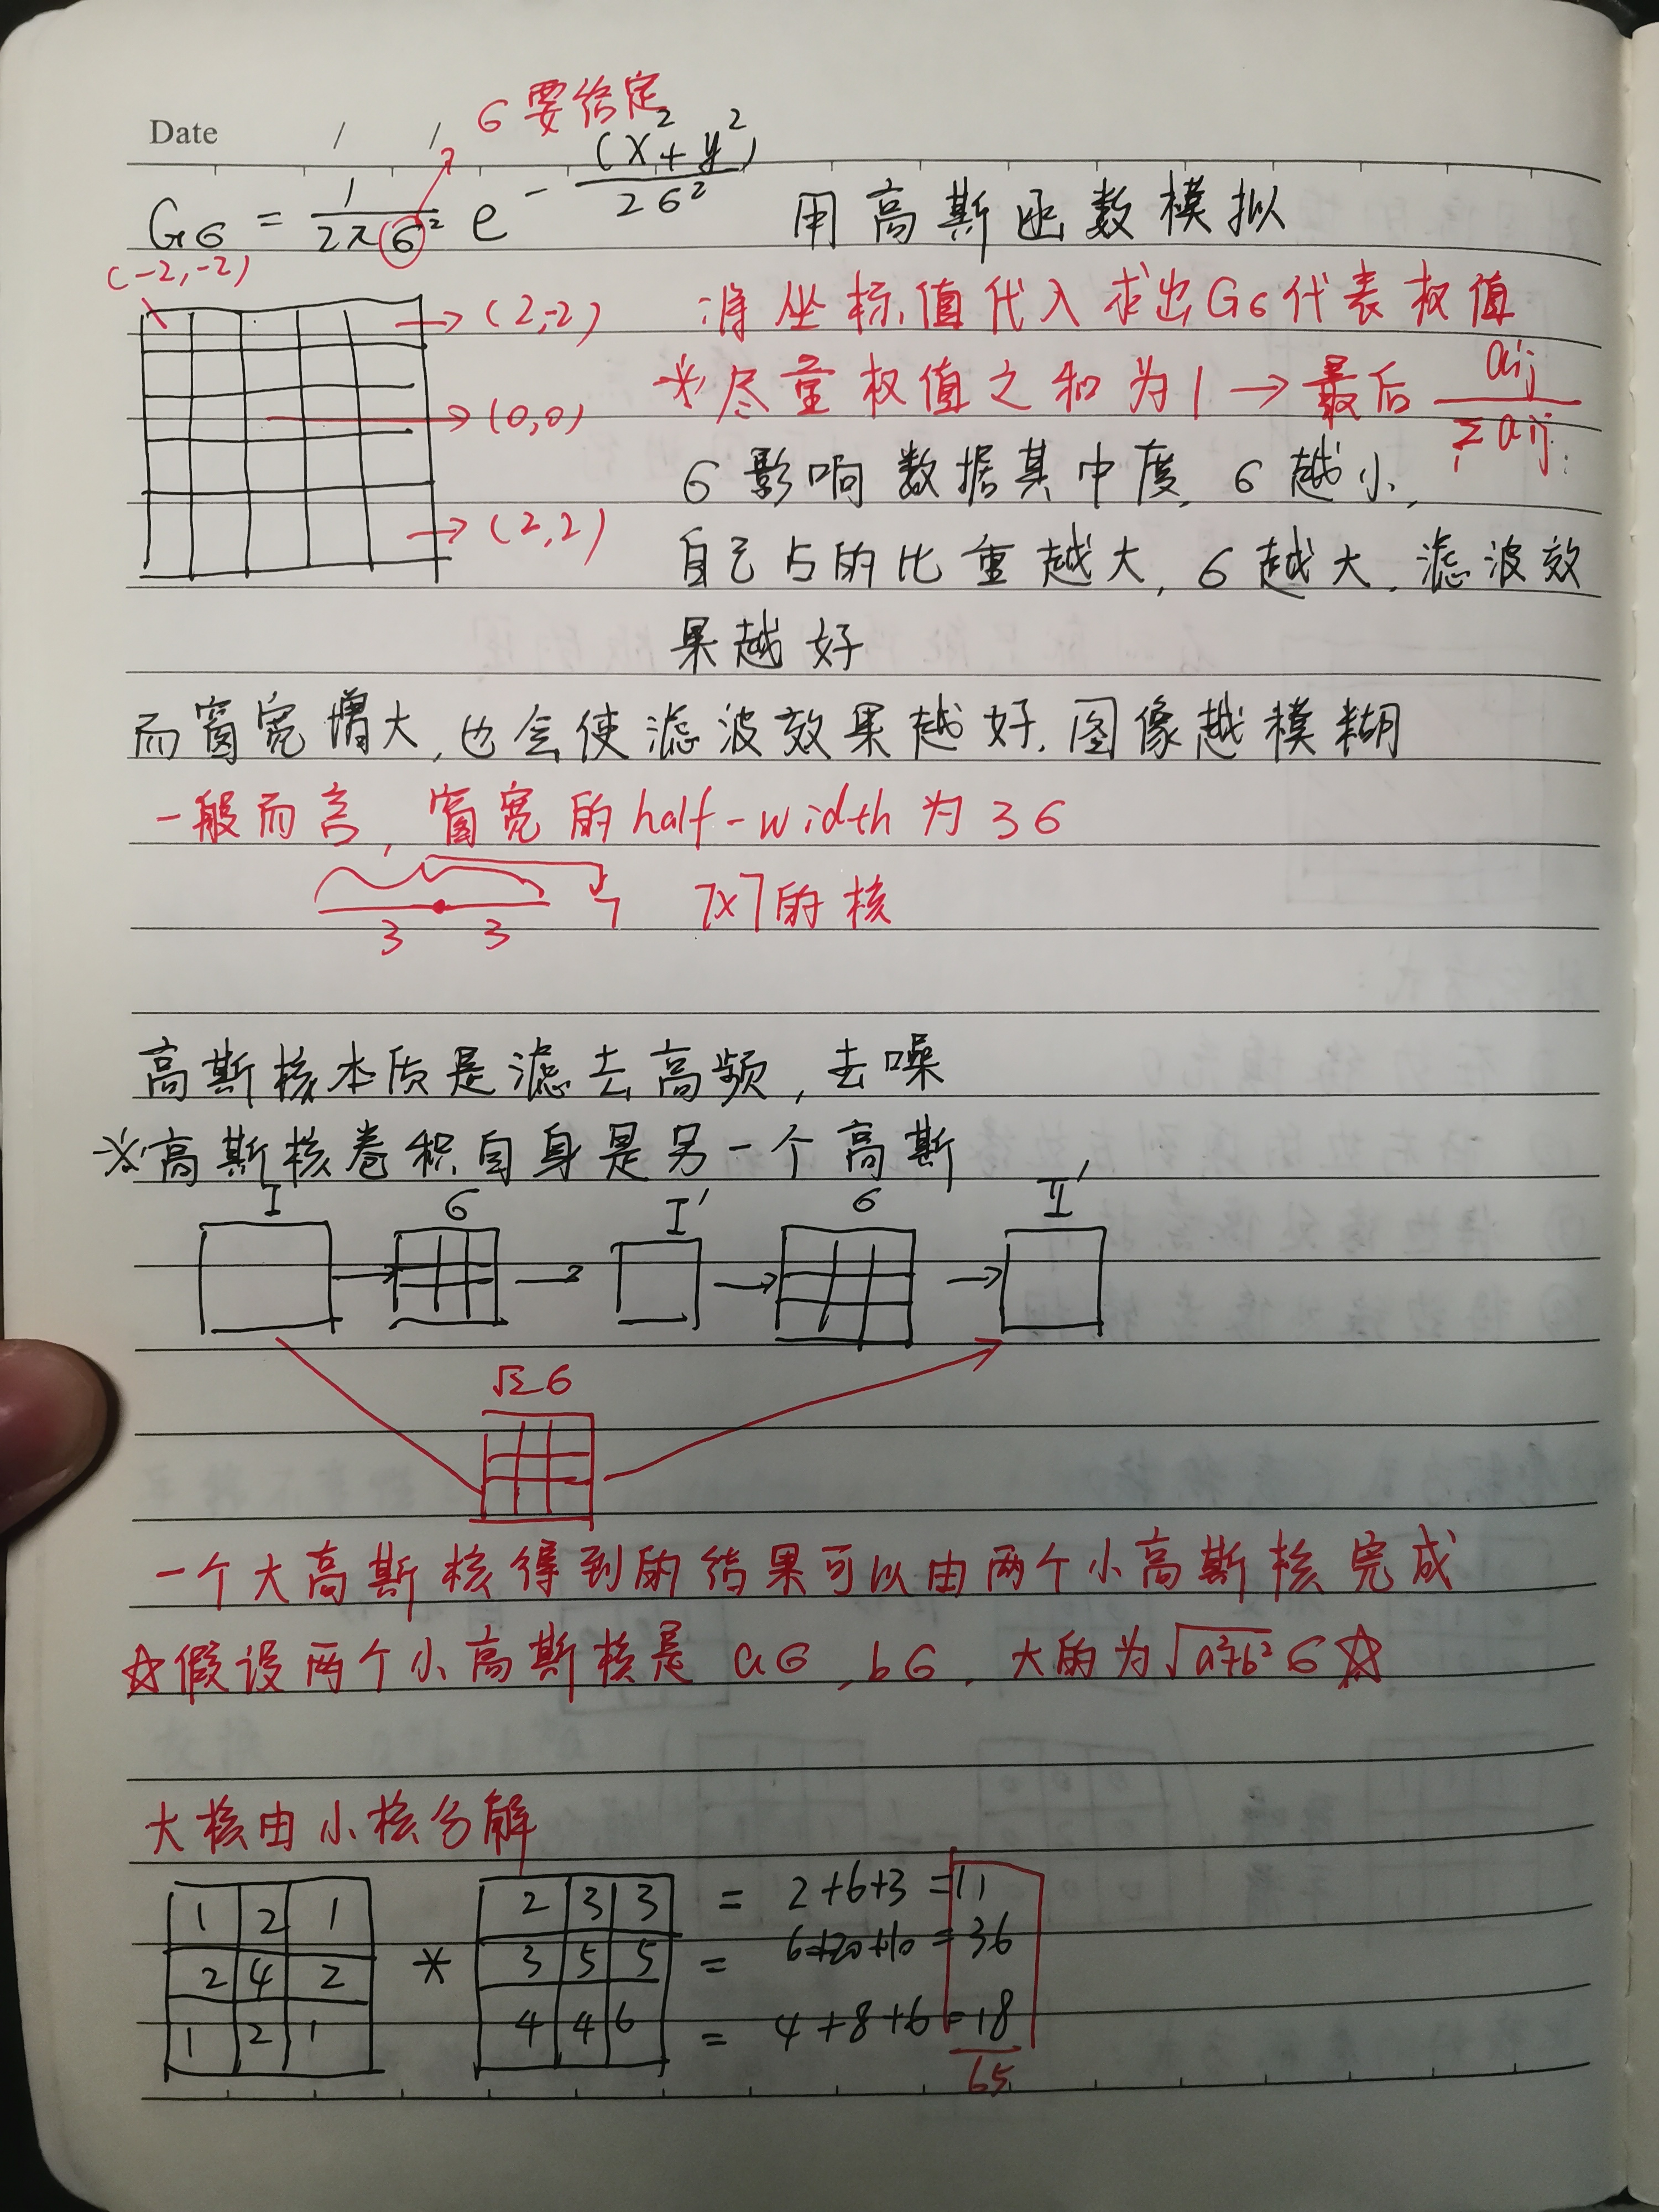 Date / /
σ要给定
Gσ = 1/(2πσ²) e^-(x²+y²)/(2σ²) 用高斯函数模拟
(-2,-2)
(2,-2) 将坐标值代入求出Gσ代表权值
(0,0) ※尽量权值之和为1→最后 aij/Σaij
σ影响数据其中度,σ越小,
(2,2) 自己占的比重越大,σ越大,滤波效
果越好
而窗宽增大,也会使滤波效果越好,图像越模糊
一般而言,窗宽的half-width为3σ
3 3 7 7x7的核
高斯核本质是滤去高频,去噪
※高斯核卷积自身是另一个高斯
I σ I' σ II'
√2σ
一个大高斯核得到的结果可以由两个小高斯核完成
☆假设两个小高斯核是 aσ,bσ,大的为√(a²+b²)σ☆
大核由小核分解
1 2 1 2 3 3 = 2+6+3=11
2 4 2 * 3 5 5 = 6+20+10=36
1 2 1 4 4 6 = 4+8+6=18
65